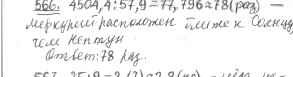 566. 4504,4:57,9=77,796≈78(раз) —
меркурий расположен ближе к Солнцу
чем Нептун
Ответ: 78 раз.